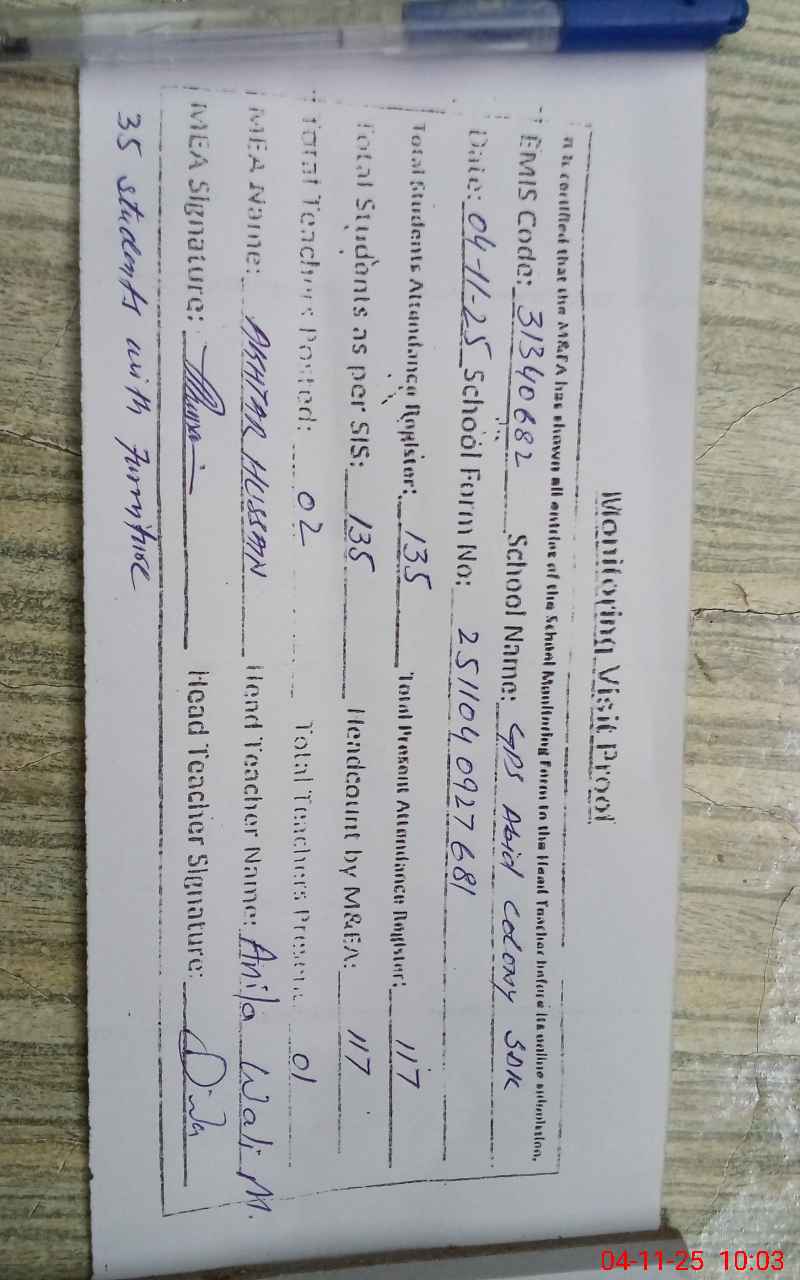 Monitoring Visit Proof
It is certified that the M&EA has shown all entries of the School Monitoring Form to the Head Teacher before its online submission.
EMIS Code: 31340682 School Name: GPS Abid Colony SDK
Date: 04-11-25 School Form No: 2511040927681
Total Students Attendance Register: 135 Total Present Attendance Register: 117
Total Students as per SIS: 135 Headcount by M&EA: 117
Total Teachers Posted: 02 Total Teachers Present: 01
MEA Name: AKHTAR HUSSAIN Head Teacher Name: Anila Wali M.
MEA Signature: Head Teacher Signature:
35 students with furniture
04-11-25 10:03